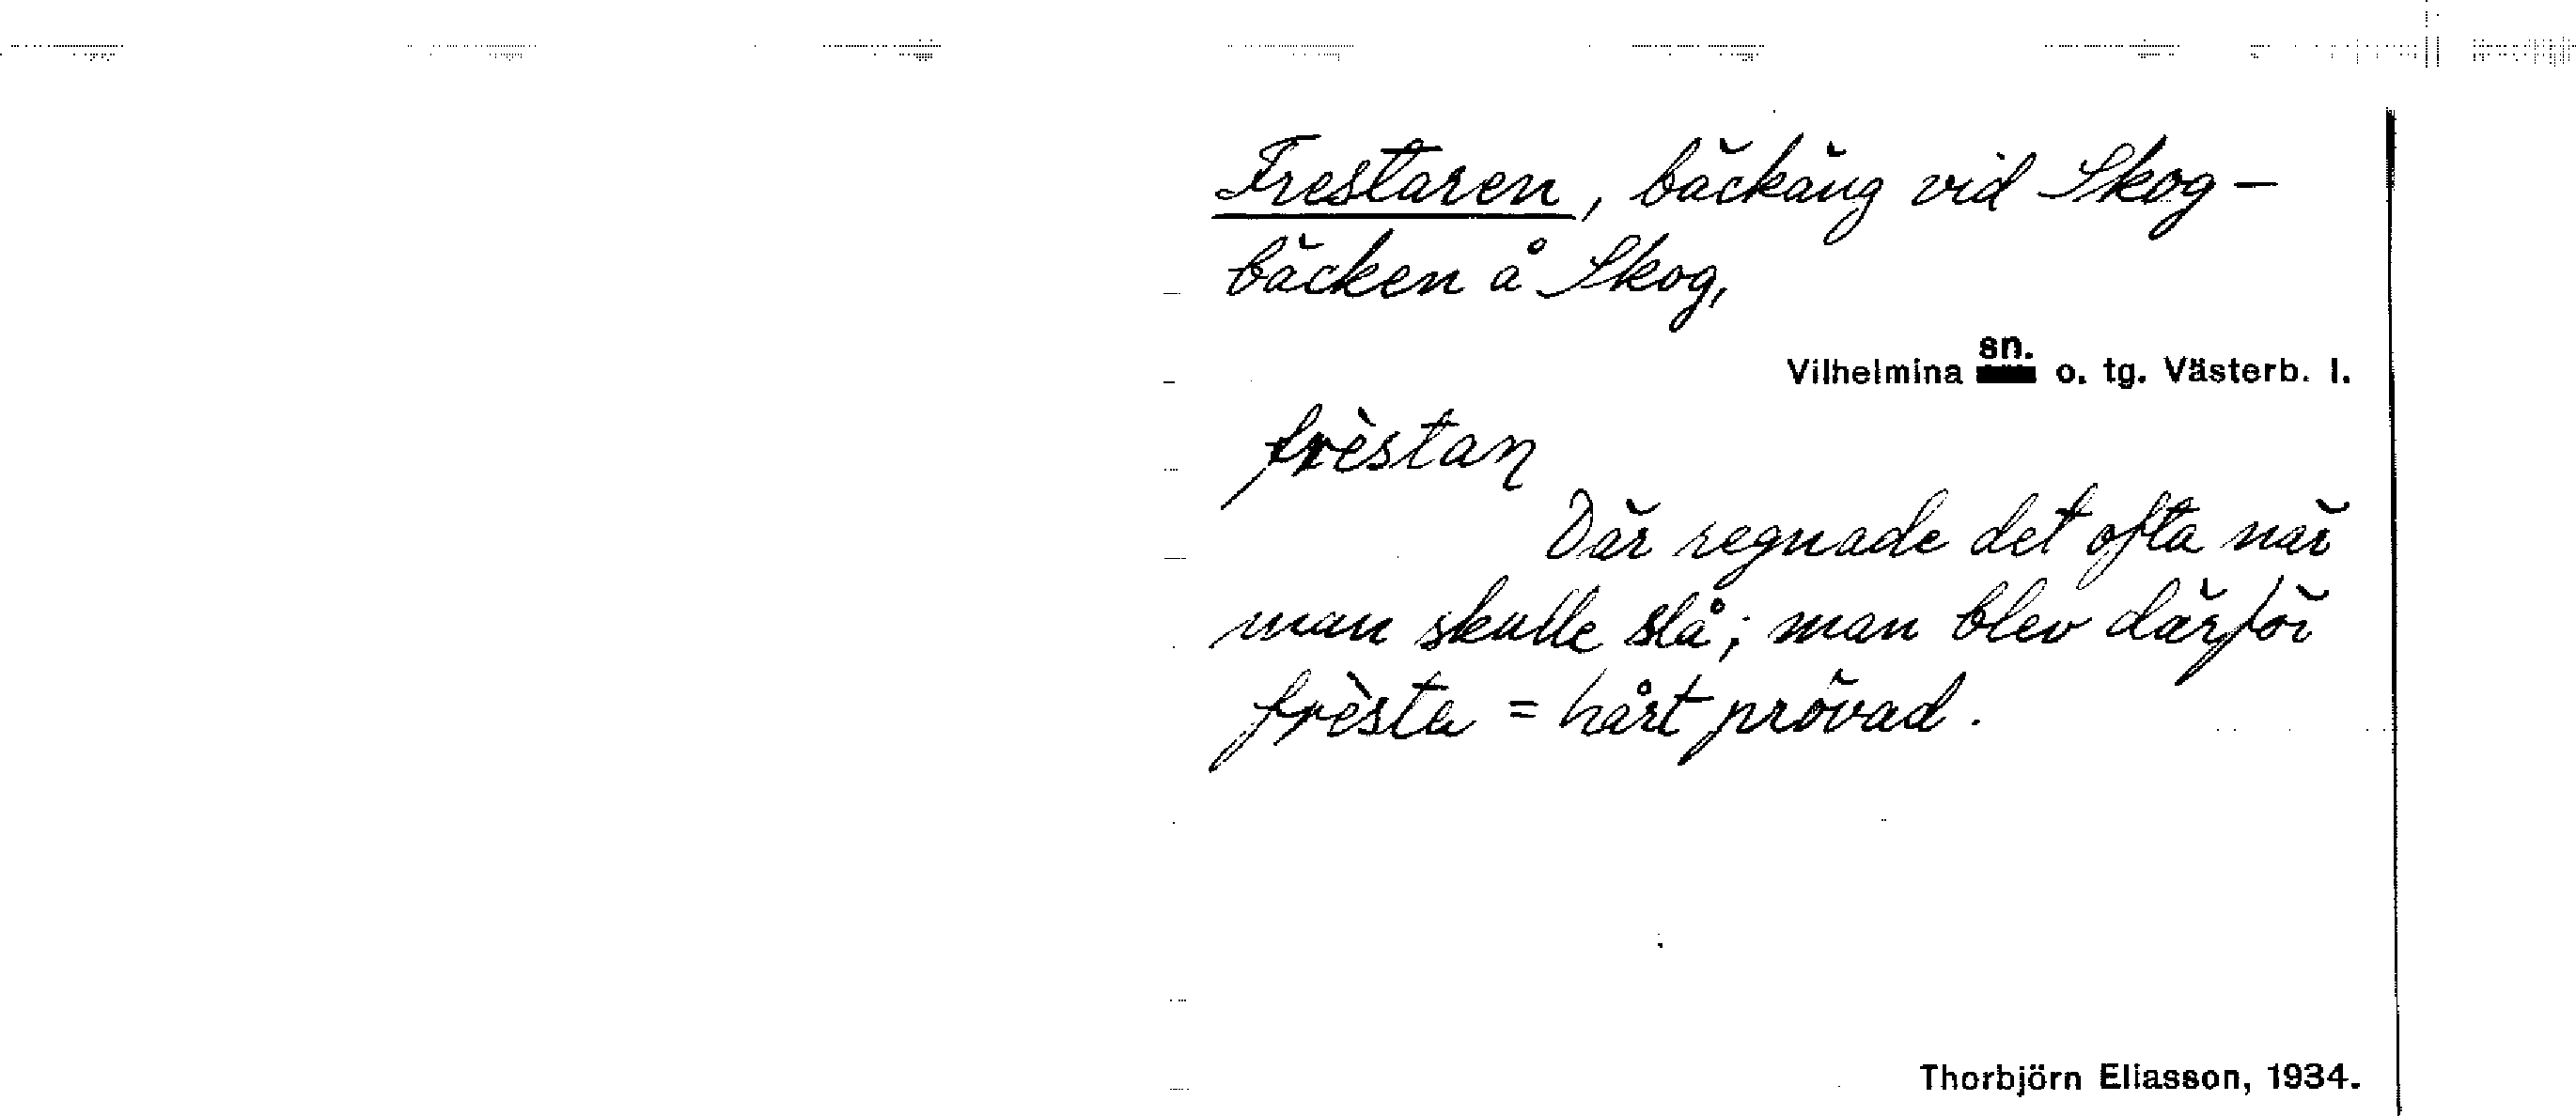 Frestaren, bäckäng vid Skog-
bäcken å Skog,
Vilhelmina sn. o. tg. Västerb. l.
frèstaɳ
Där regnade det ofta när
man skulle slå; man blev därför
frèsta = hårt prövad.
Thorbjörn Eliasson, 1934.